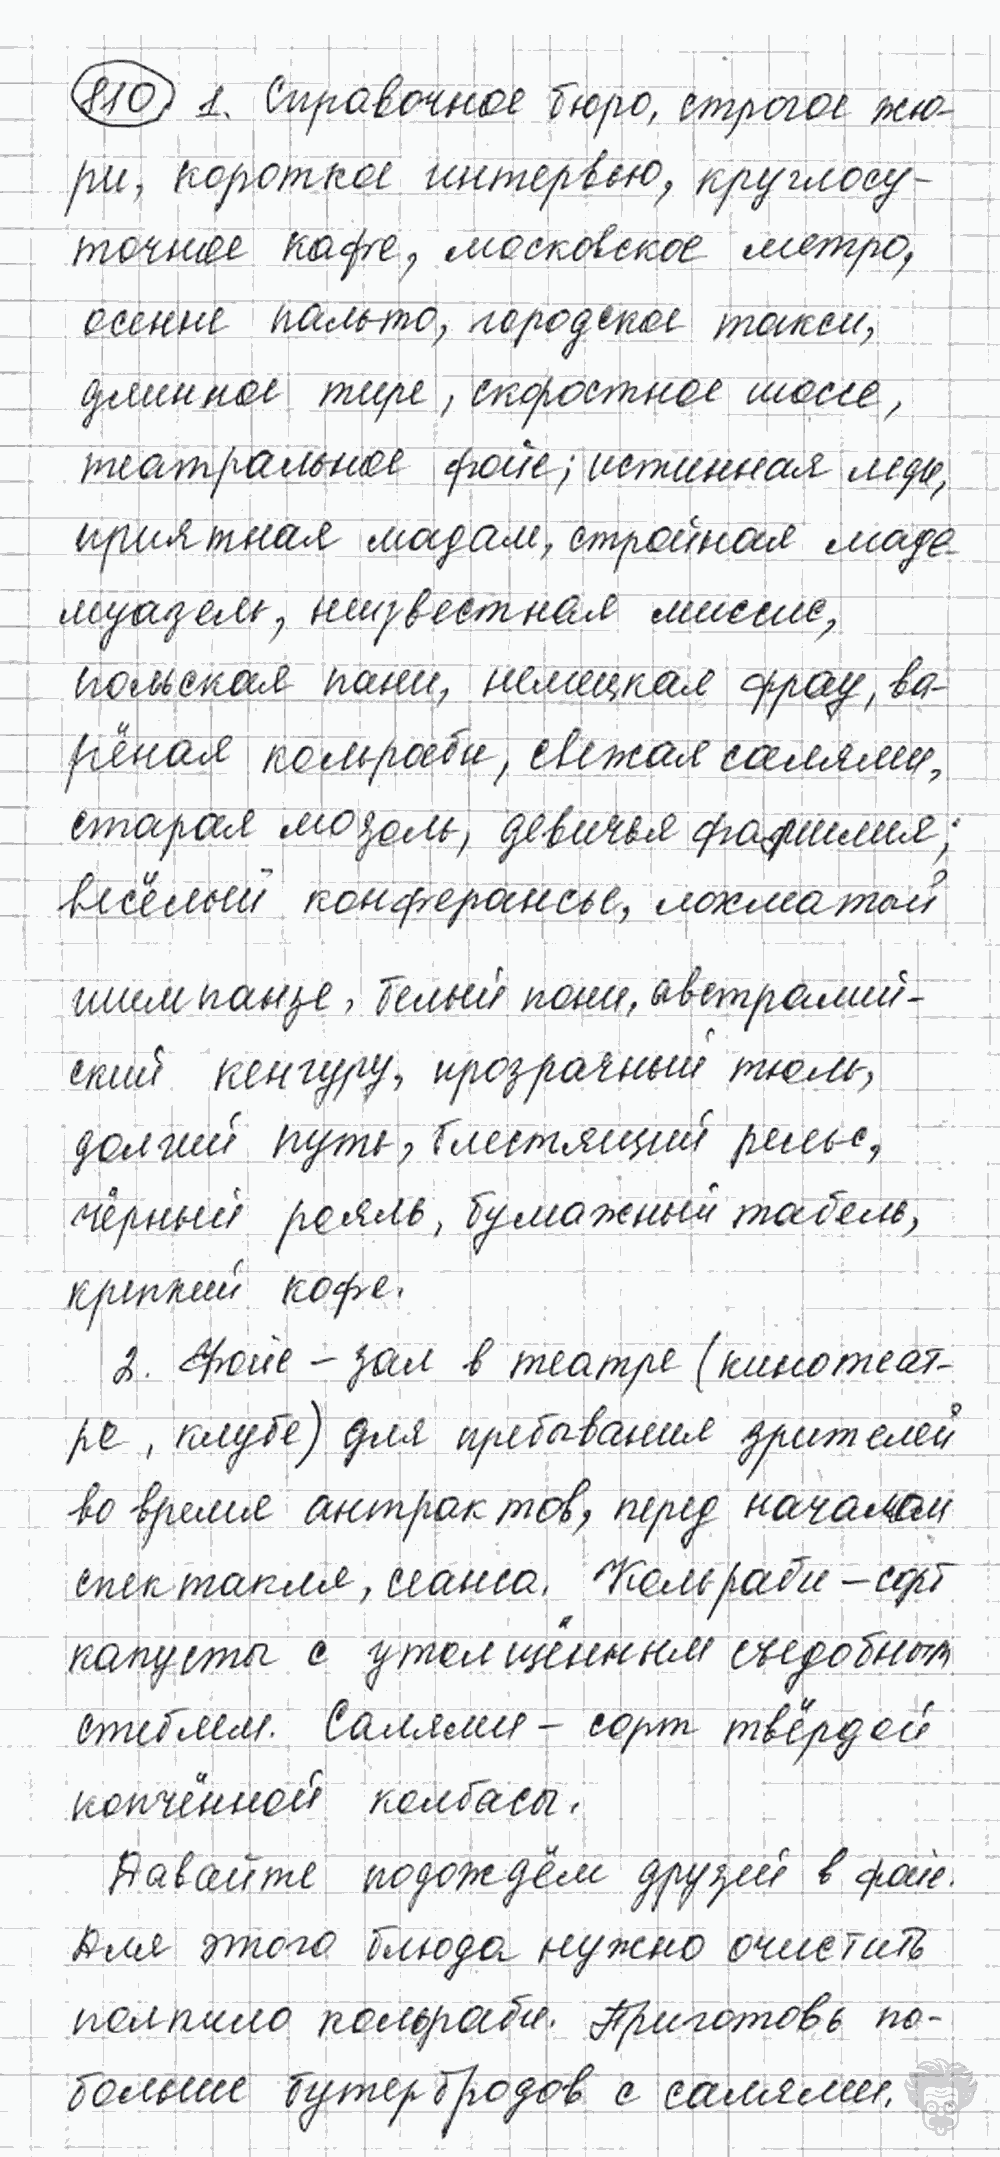 810 1. Справочное бюро, строгое жю-
ри, короткое интервью, круглосу-
точное кафе, московское метро,
осенне пальто, городское такси,
длинное тире, скоростное шоссе,
театральное фойе; истинная леди,
приятная мадам, стройная маде-
муазель, неизвестная миссис,
польская пани, немецкая фрау, ва-
рёная кольраби, свежая салями,
старая мозоль, девичья фамилия;
весёлый конферансье, лохматый
шимпанзе, белый пони, австралий-
ский кенгуру, прозрачный тюль,
долгий путь, блестящий рельс,
чёрный рояль, бумажный табель,
крепкий кофе.
2. Фойе – зал в театре (кинотеат-
ре, клубе) для пребывания зрителей
во время антрактов, перед началом
спектакля, сеанса. Кольраби – сорт
капусты с утолщённым съедобным
стеблем. Салями – сорт твёрдой
копчённой колбасы.
Давайте подождём друзей в фойе.
Для этого блюда нужно очистить
полкило кольраби. Приготовь по-
больше бутербродов с салями.